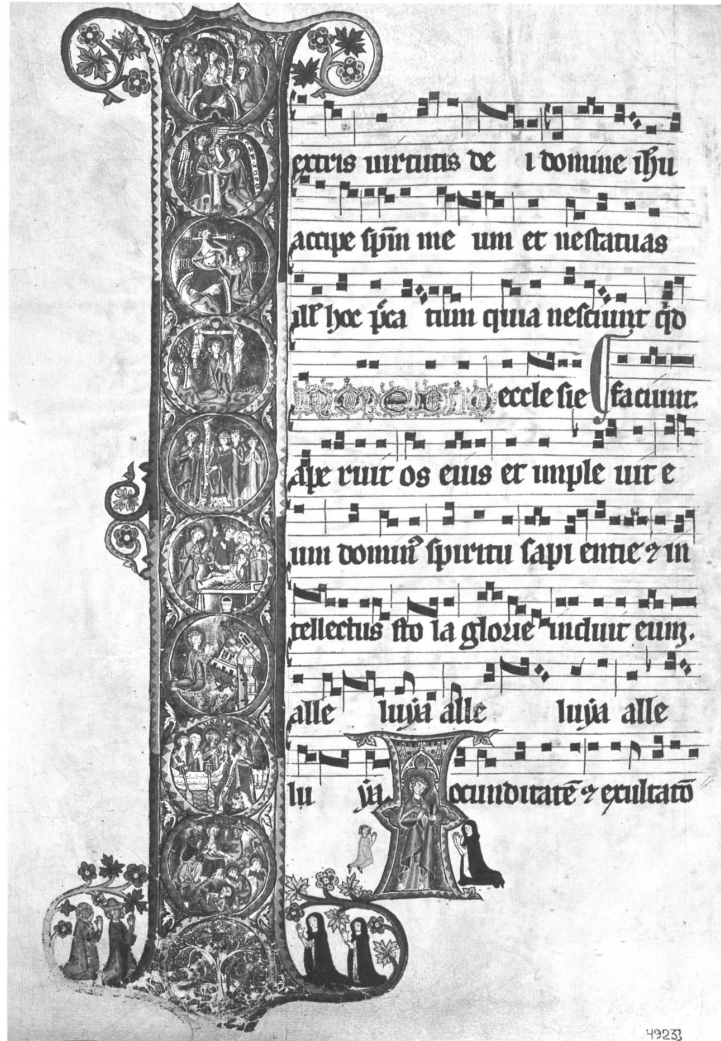 extris uirtutis de i domine ihu
accipe spm me um et nestatuas
ill hoc pca tum quia nesciunt qd
ecclesie faciunt.
ape ruit os eius et imple uit e
um domin spiritu sapi entie & in
tellectus sto la glorie induit eum.
alle luya alle luya alle
lu ya Iocunditate & exultato
49233